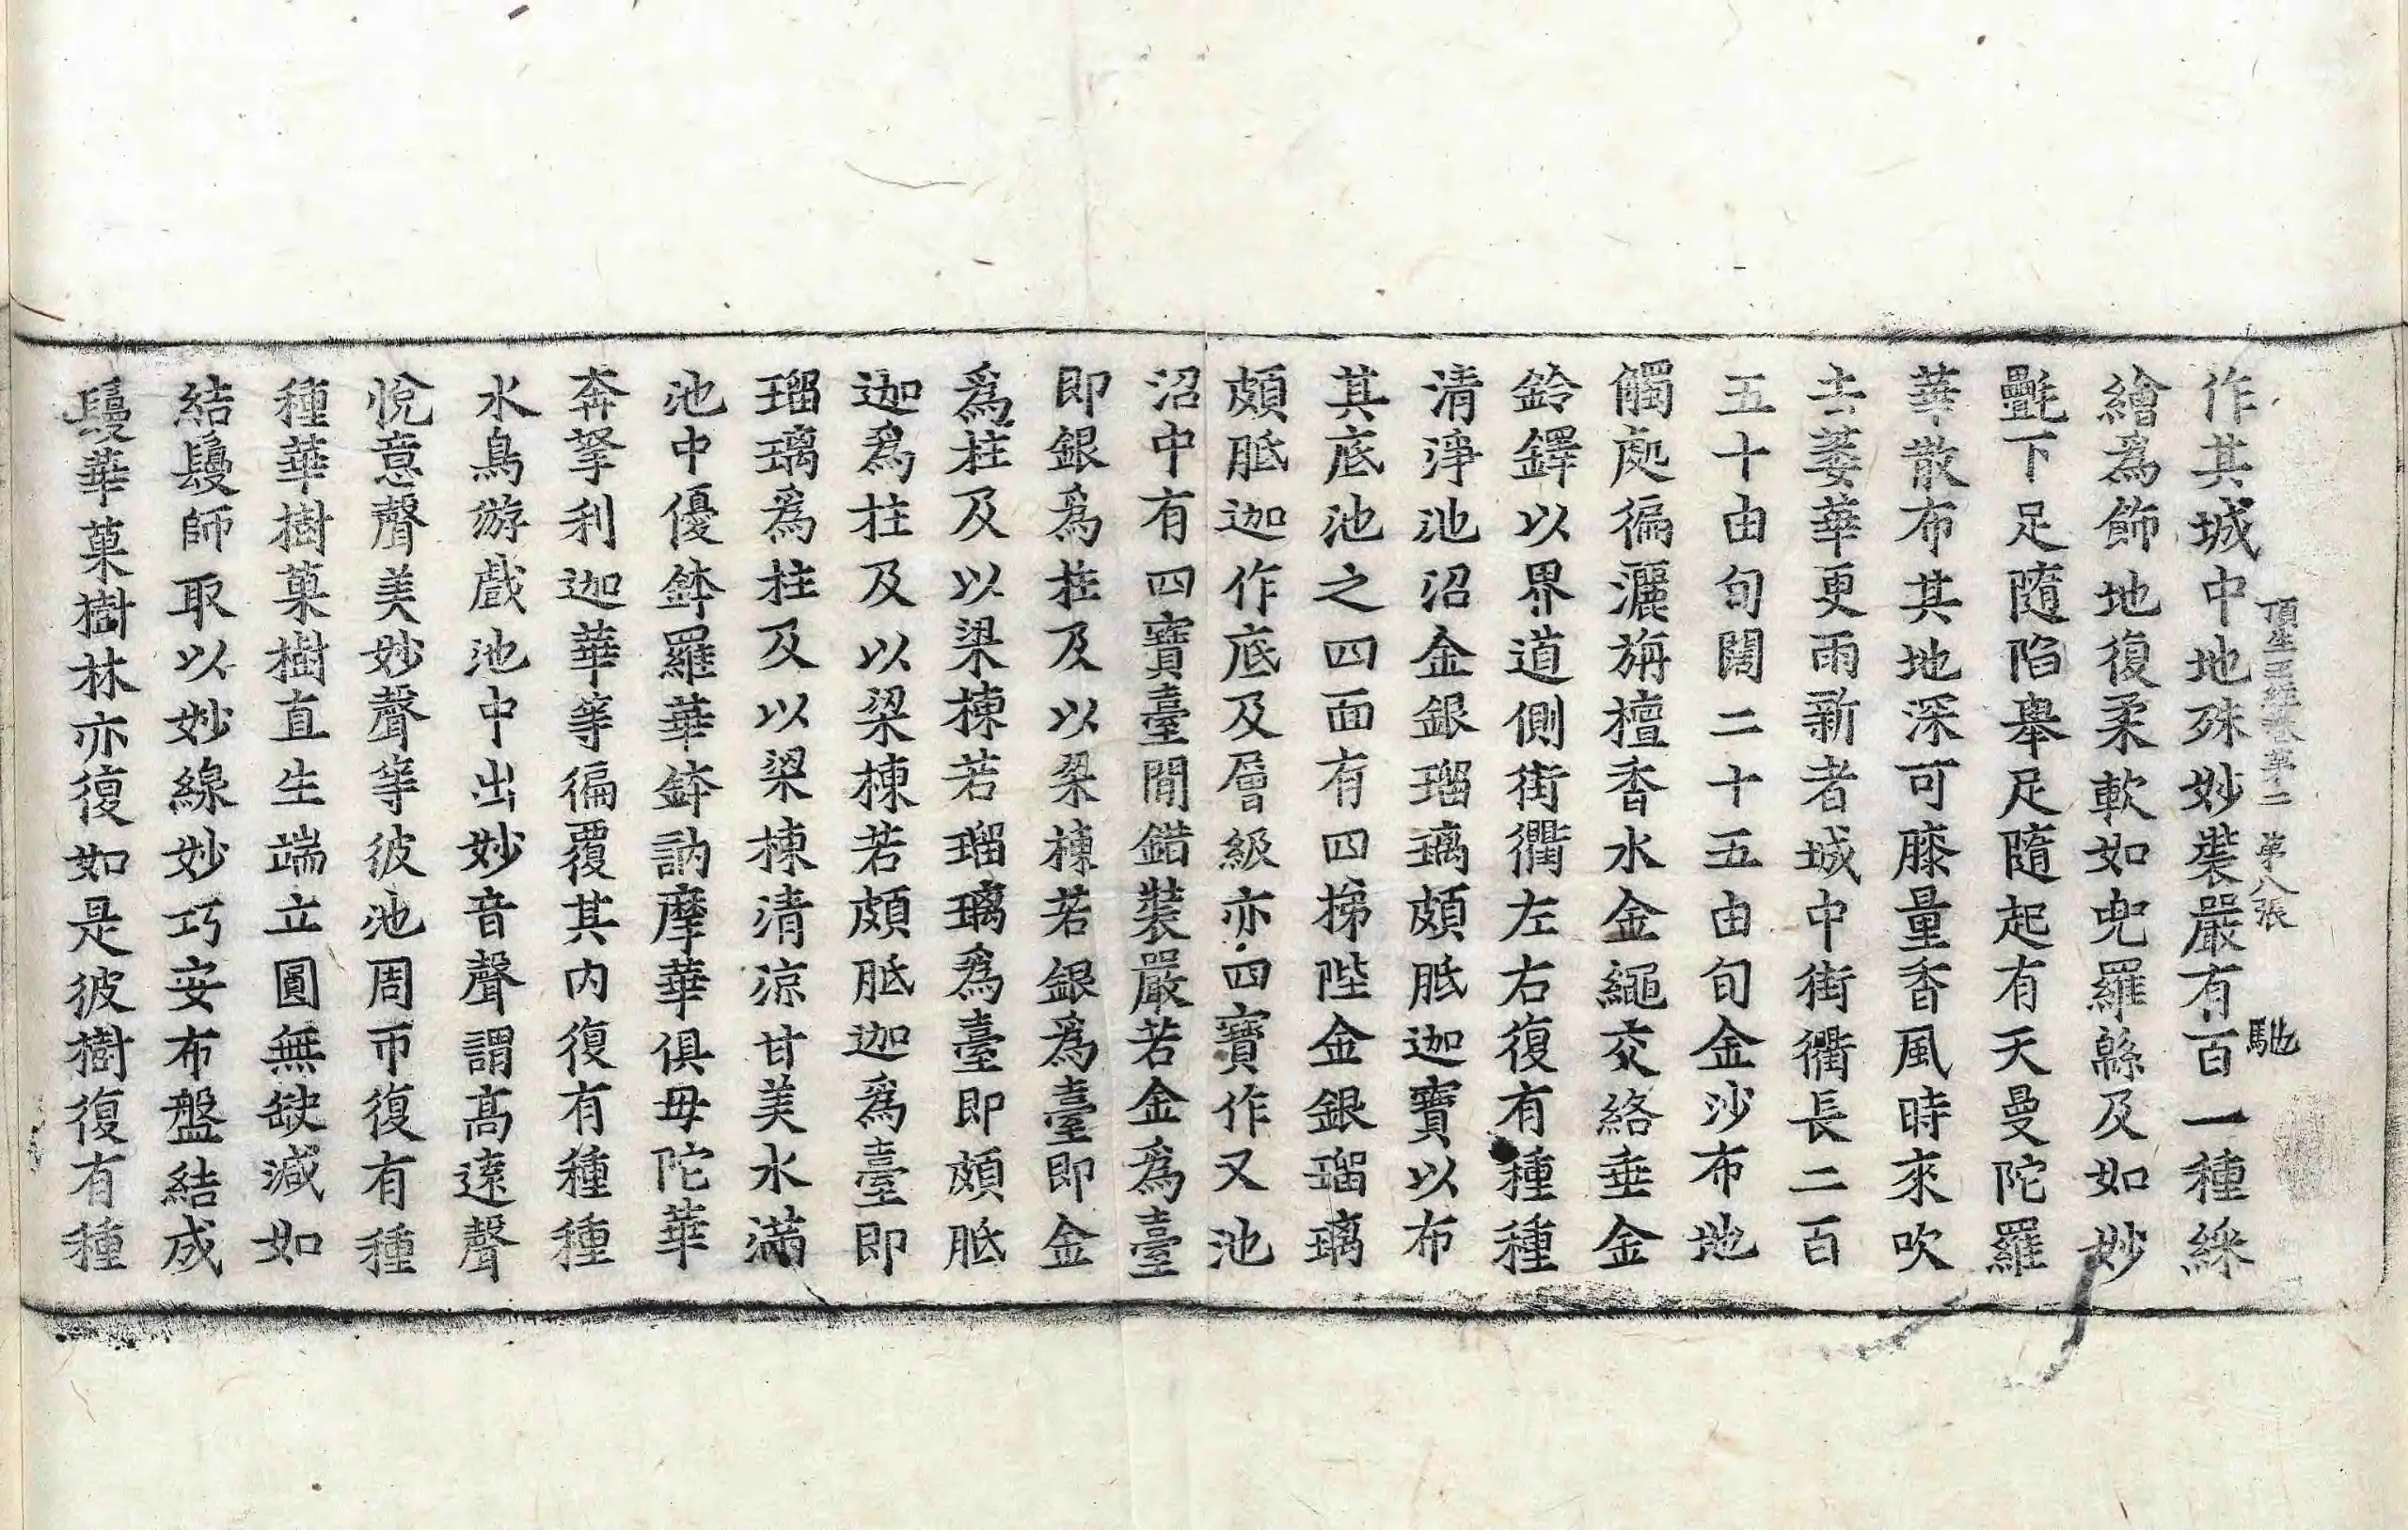 作其城中地殊妙裝嚴有百一種綵
頂生王經卷第二 第八張 馳
繪爲飾地復柔軟如兜羅緜及如妙
㲲下足隨陷舉足隨起有天曼陀羅
華散布其地深可膝量香風時來吹
去萎華更雨新者城中街衢長二百
五十由旬闊二十五由旬金沙布地
觸處徧灑旃檀香水金繩交絡垂金
鈴鐸以界道側街衢左右復有種種
清淨池沼金銀瑠璃頗胝迦寶以布
其底池之四面有四梯陛金銀瑠璃
頗胝迦作底及層級亦四寶作又池
沼中有四寶臺閒錯裝嚴若金爲臺
即銀爲柱及以梁棟若銀爲臺即金
爲柱及以梁棟若瑠璃爲臺即頗胝
迦爲柱及以梁棟若頗胝迦爲臺即
瑠璃爲柱及以梁棟清涼甘美水滿
池中優鉢羅華鉢訥摩華俱毋陀華
奔拏利迦華等徧覆其内復有種種
水鳥游戲池中出妙音聲謂高遠聲
悅意聲美妙聲等彼池周帀復有種
種華樹菓樹直生端立圓無缺減如
結鬘師取以妙線妙巧安布盤結成
鬘華菓樹林亦復如是彼樹復有種